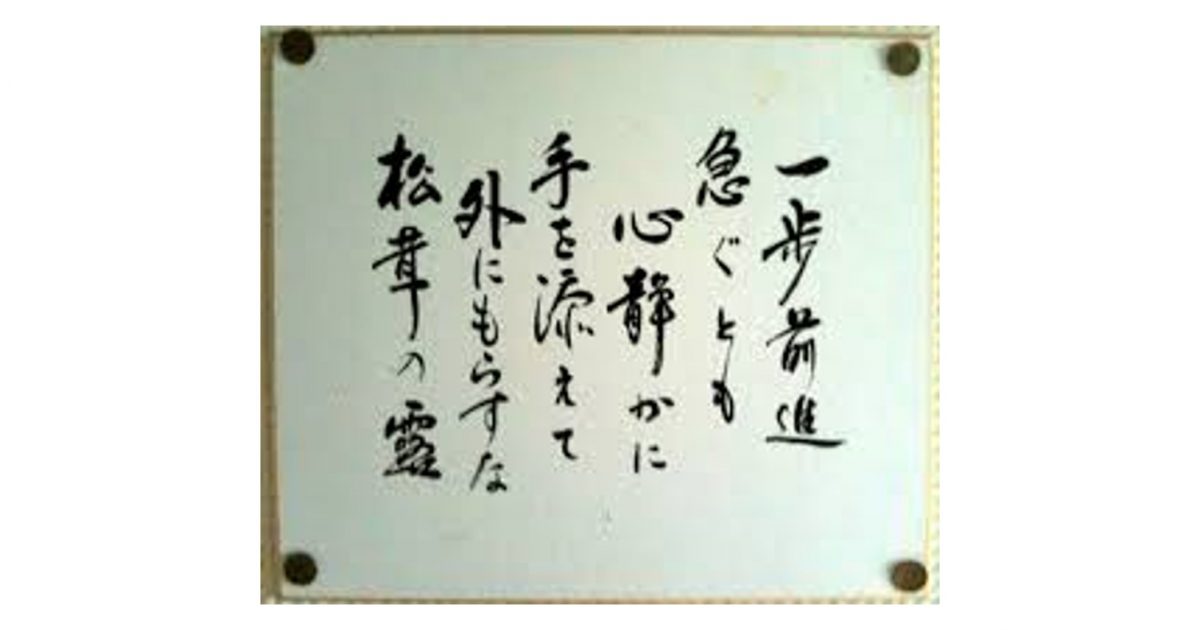 一歩前進
急ぐとも
心静かに
手を添えて
外にもらすな
松茸の露